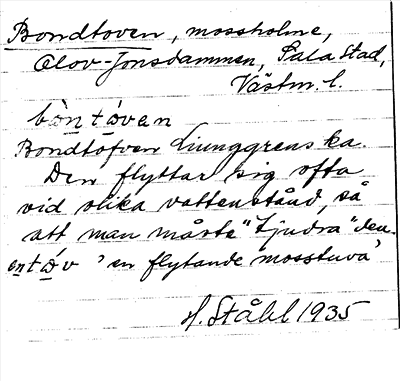 Bondtoven, mossholme,
Olov-Jonsdammen, Sala Stad,
Västm. l.
bòntóven
Bondtofven Liunggrens ka.
Den flyttar sig ofta
vid olika vattenstånd, så
att man måste "tjudra" den.
entóv 'en flytande mosstuva'
H. Ståhl 1935